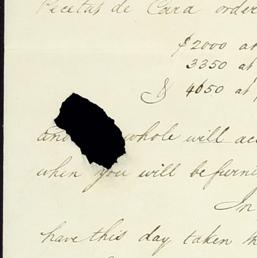 Pecetas de Cara order
$2000 at
3350 at
$ 4050 at
and whole will acc
when you will be furni
In
have this day taken th